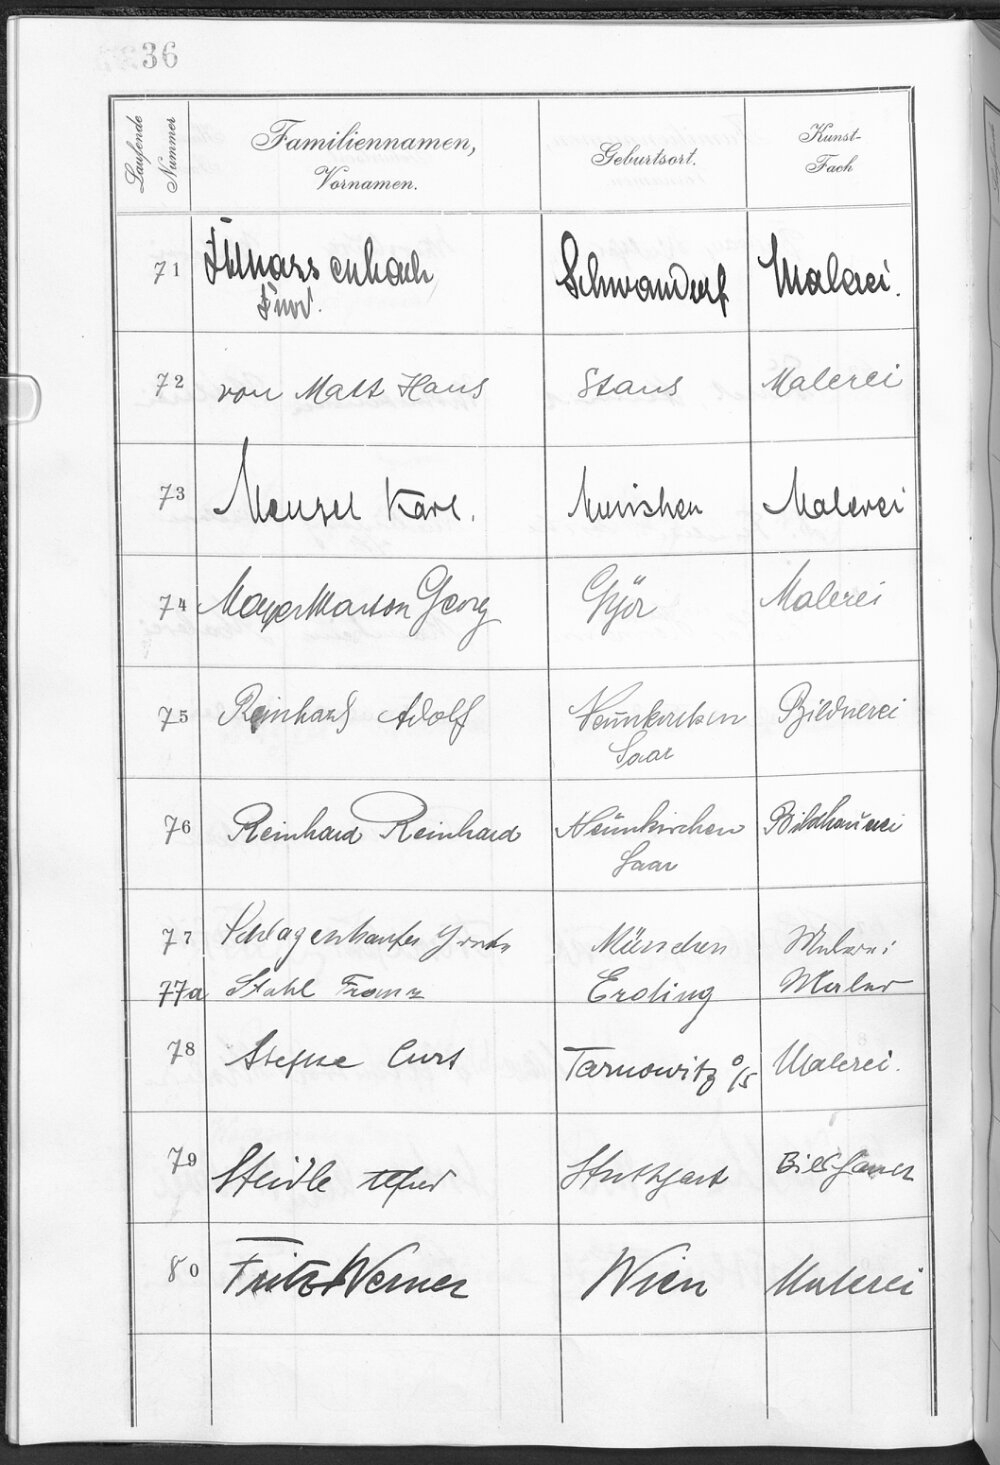 36
Laufende Nummer
Familiennamen, Vornamen.
Geburtsort.
Kunst-Fach
71 Schwandorf Malerei.
72 von Matt Hans Stans Malerei
73 Menzel Karl. München Malerei
74 Mayer Marton Georg Györ Malerei
75 Reinhard Adolf Neunkirchen Saar Bildnerei
76 Reinhard Reinhard Neunkirchen Saar Bildhauerei
77 München Malerei
77a Stahl Franz Erding Maler
78 Curt Tarnowitz O/S Malerei.
79 Steidle Stuttgart Bildhauer
80 Fritz Werner Wien Malerei